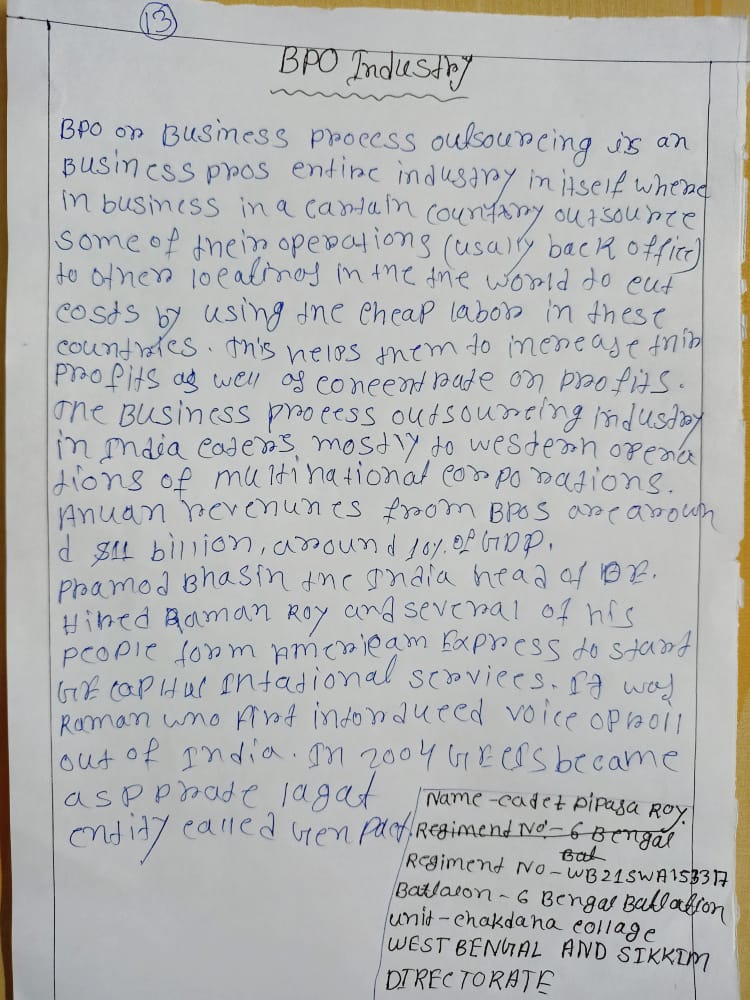 13
BPO Industry
BPO or Business process outsourcing is an
Business pros entire industry in itself where
in business in a cartain country outsource
some of their operations (usally back office)
to other localinos in the the world to cut
costs by using the cheap labor in these
countries. this helps them to increase thir
profits as well as concentrate on profits.
The Business process outsourcing industry
in India caters mostly to western opera
tions of multinational corporations.
Anuan revenunes from BPOs are aroun
d $11 billion, around 10%. of GDP.
Pramod Bhasin the India head of GE.
Hired Raman Roy and several of his
people form Amerieam Express to start
GE capital Intational services. It was
Raman who first intorduced voice oproll
out of India. In 2004 GECIS became
aspprate lagat
entity called Gen pact
Name - cadet Pipasa Roy.
Regimend No - 6 Bengal
Bat
Regiment No - WB21SWA153317
Batlaion - 6 Bengal Batlation
unit - chakdaha collage
WEST BENGAL AND SIKKIM
DIRECTORATE